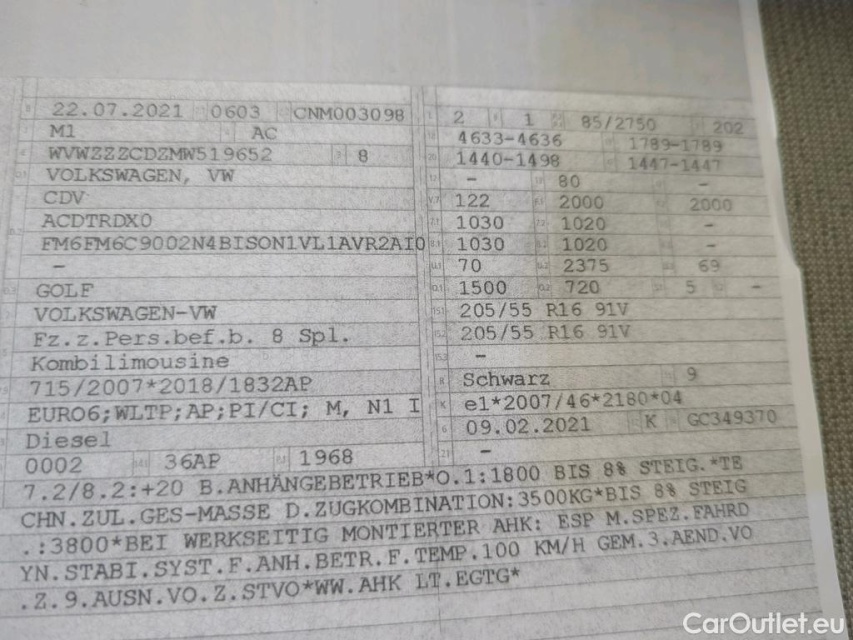 22.07.2021 0603 CNM003098
M1 AC
WVWZZZCDZMW519652 8
VOLKSWAGEN, VW
CDV
ACDTRDX0
FM6FM6C9002N4BISON1VL1AVR2AI0
-
GOLF
VOLKSWAGEN-VW
Fz.z.Pers.bef.b. 8 Spl.
Kombilimousine
715/2007*2018/1832AP
EURO6;WLTP;AP;PI/CI; M, N1 I
Diesel
0002 36AP 1968
2 1 85/2750 202
4633-4636 1789-1789
1440-1498 1447-1447
- 80 -
122 2000 2000
1030 1020 -
1030 1020 -
70 2375 69
1500 720 5 -
205/55 R16 91V
205/55 R16 91V
-
Schwarz 9
e1*2007/46*2180*04
09.02.2021 K GC349370
-
7.2/8.2:+20 B.ANHÄNGEBETRIEB*O.1:1800 BIS 8% STEIG.*TE
CHN.ZUL.GES-MASSE D.ZUGKOMBINATION:3500KG*BIS 8% STEIG
.:3800*BEI WERKSEITIG MONTIERTER AHK: ESP M.SPEZ.FAHRD
YN.STABI.SYST.F.ANH.BETR.F.TEMP.100 KM/H GEM.3.AEND.VO
.Z.9.AUSN.VO.Z.STVO*WW.AHK LT.EGTG*
CarOutlet.eu